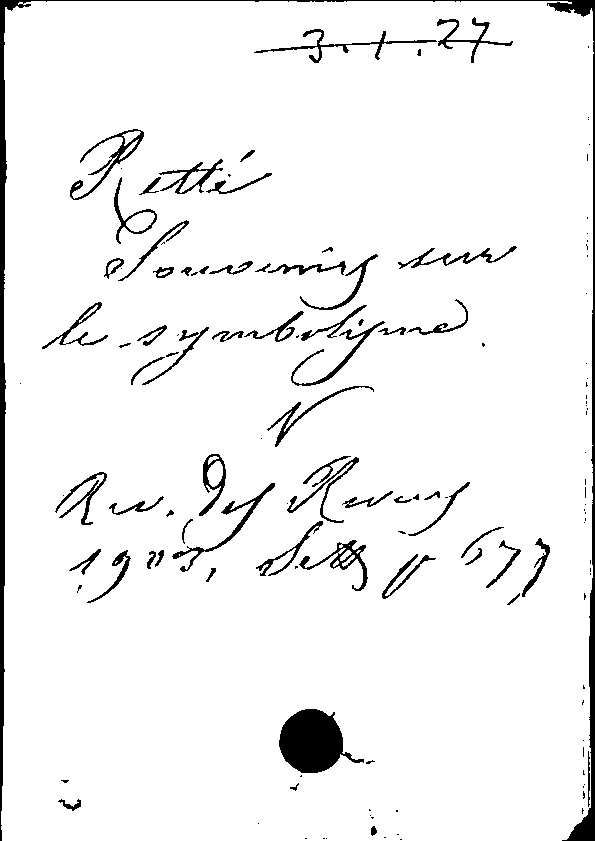 3.1.27
Retté
Souvenirs sur
le symbolisme.
V
Rev. des Revues
1903, Sett p 677